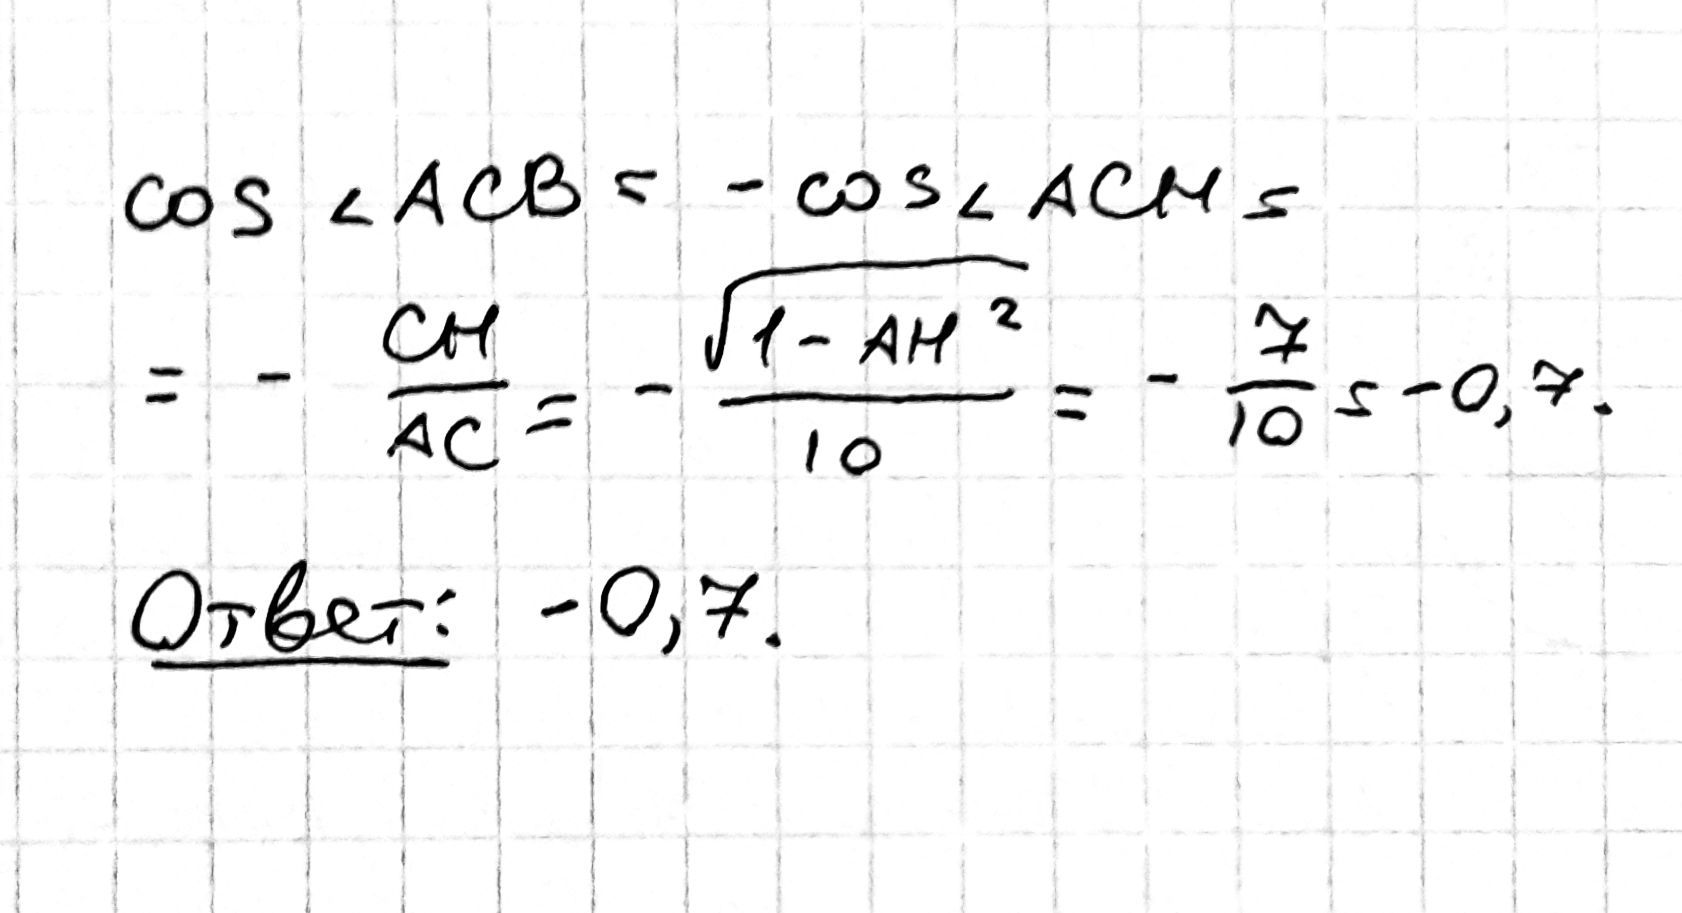 cos ∠ACB = -cos∠ACH =
= - CH/AC = - √(1-AH²)/10 = - 7/10 = -0,7.
Ответ: -0,7.